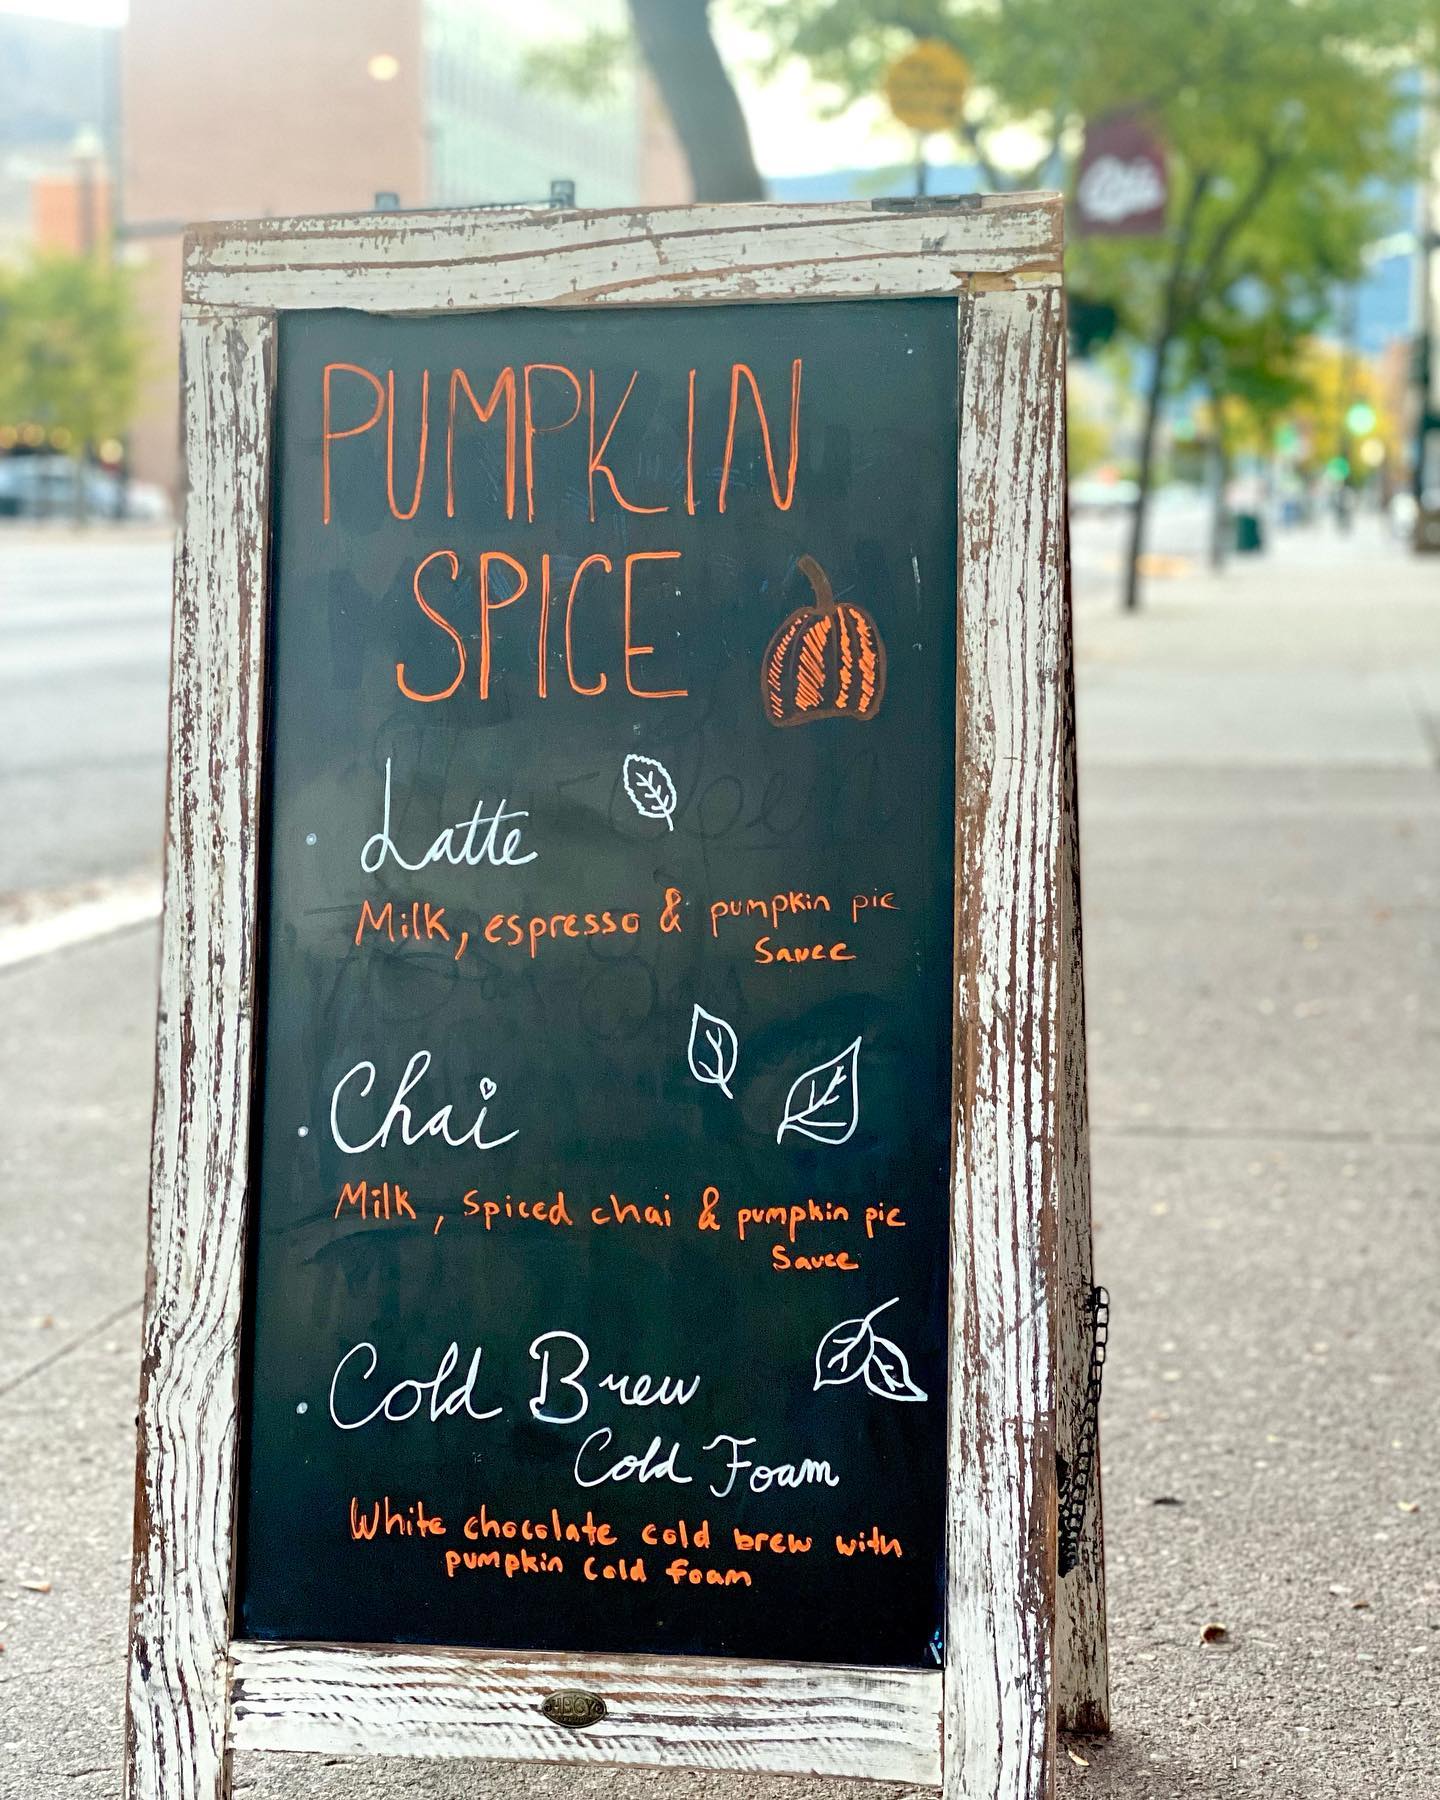 PUMPKIN
SPICE
• Latte
Milk, espresso & pumpkin pie
Sauce
• Chai
Milk, spiced chai & pumpkin pie
Sauce
• Cold Brew
Cold Foam
White chocolate cold brew with
pumpkin cold foam